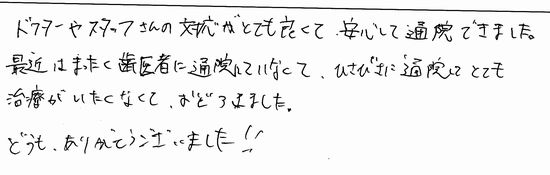 ドクターやスタッフさんの対応がとても良くて、安心して通院できました。
最近はまったく歯医者に通院していなくて、ひさびさに通院してとても
治療がいたくなくて、おどろきました。
どうも、ありがとうございました!!